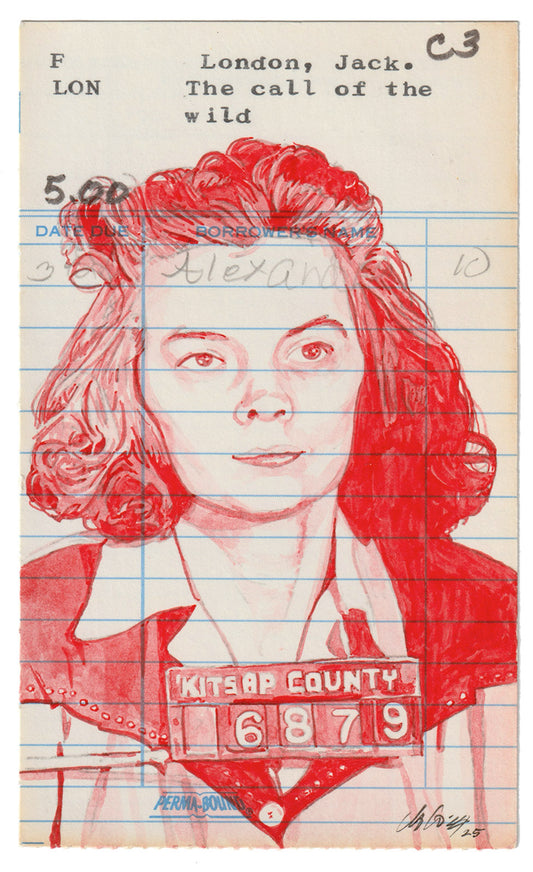 F London, Jack. C3
LON The call of the
wild
5.00
DATE DUE BORROWER'S NAME
10
KITSAP COUNTY
6879
PERMA-BOUND
25